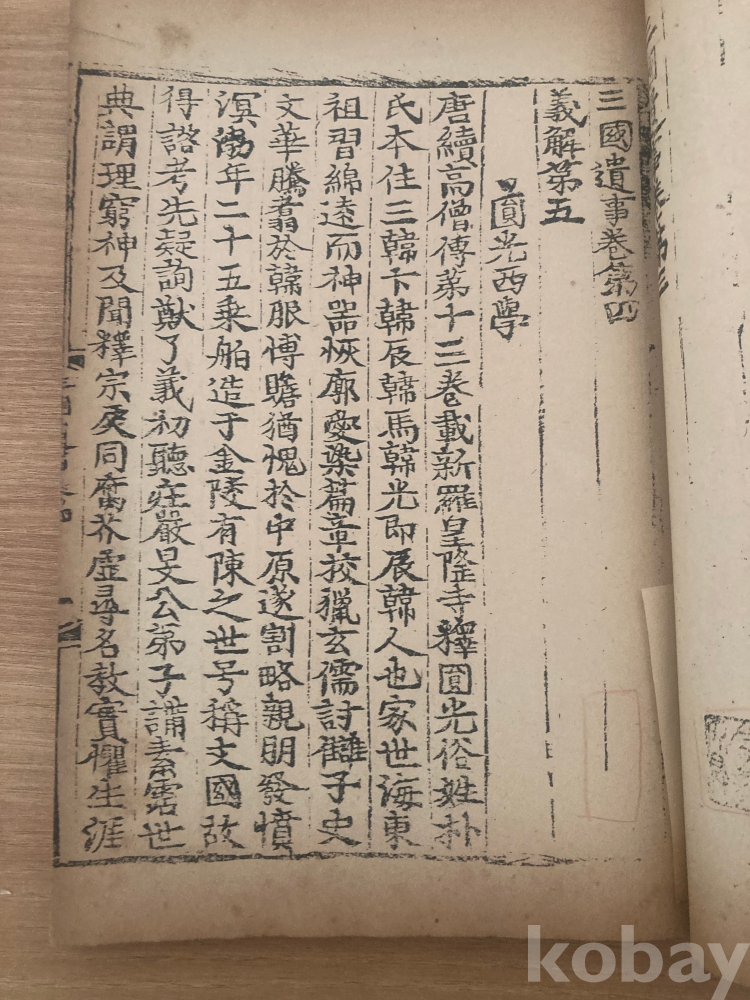 三國遺事卷第四
義解第五
圓光西學
唐續高僧傳第十三卷載新羅皇隆寺釋圓光俗姓朴
氏本住三韓卞韓辰韓馬韓光即辰韓人也家世海東
祖習綿遠而神器恢廓愛染篇章挍獵玄儒討讎子史
文華騰翥於韓服博贍猶愧於中原遂割略親朋發憤
溟渤年二十五乗舶造于金陵有陳之世号稱文國故
得諮考先疑詢猷了義初聽莊嚴旻公弟子講素霑世
典謂理窮神及聞釋宗反同腐芥虛尋名教實懼生涯
kobay